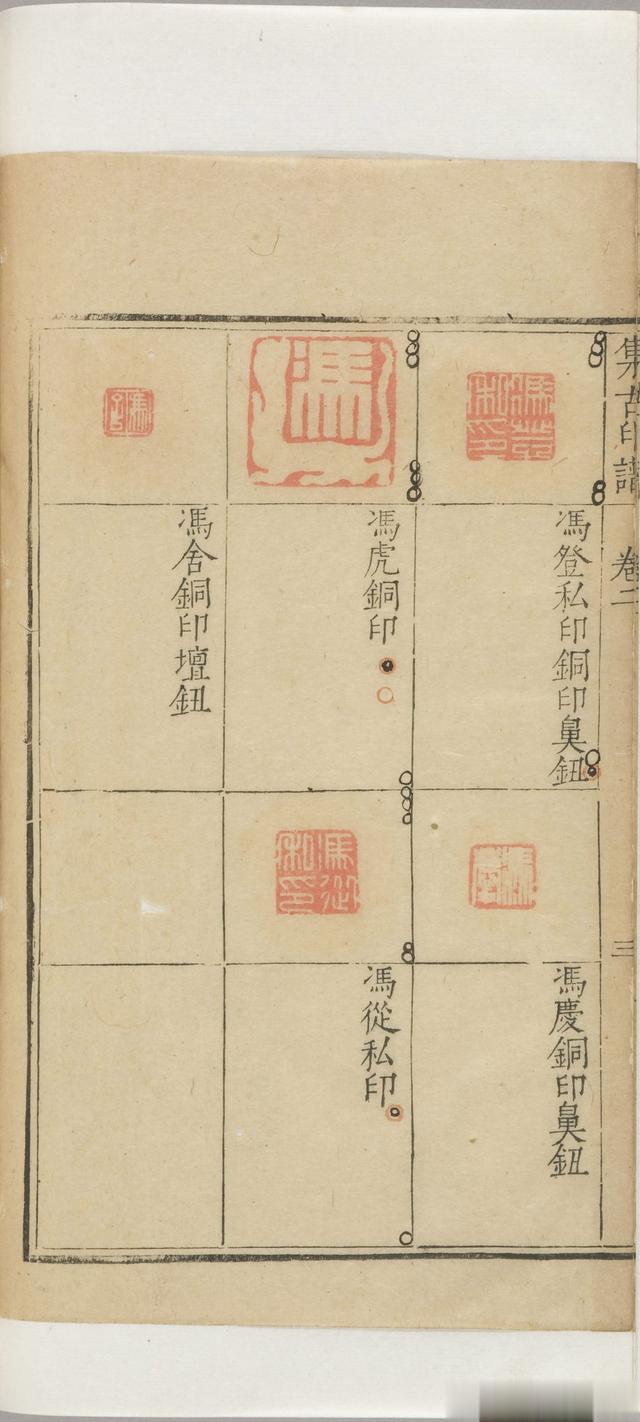 集古印譜 卷二 三
馮登私印銅印鼻鈕
馮慶銅印鼻鈕
馮虎銅印
馮從私印
馮舍銅印壇鈕